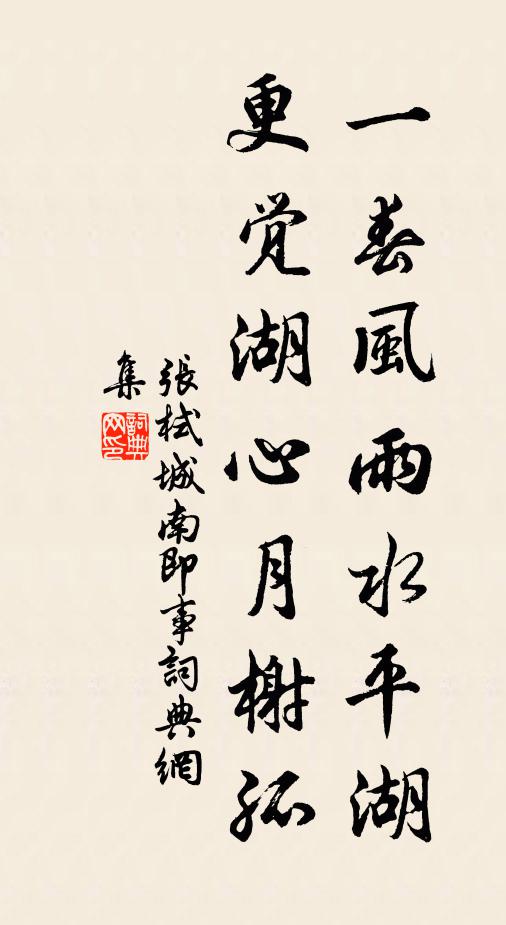 一春風雨水平湖
更觉湖心月榭孤
張栻城南即事詞典網
集
詞典网印